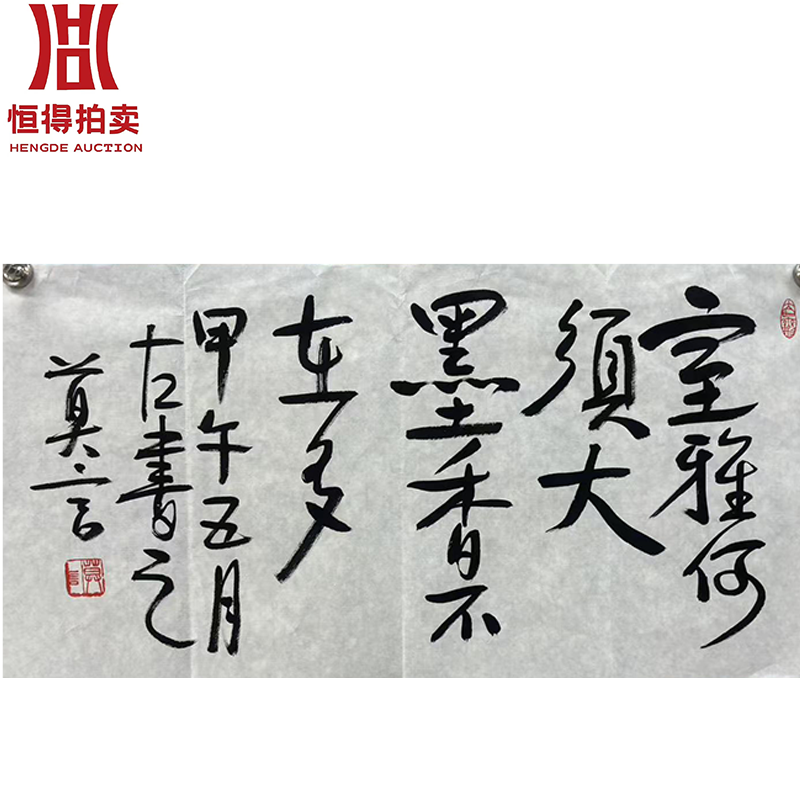 恒得拍卖
HENGDE AUCTION
室雅何
须大
墨香不
在多
甲午五月
左書之
莫言
莫言